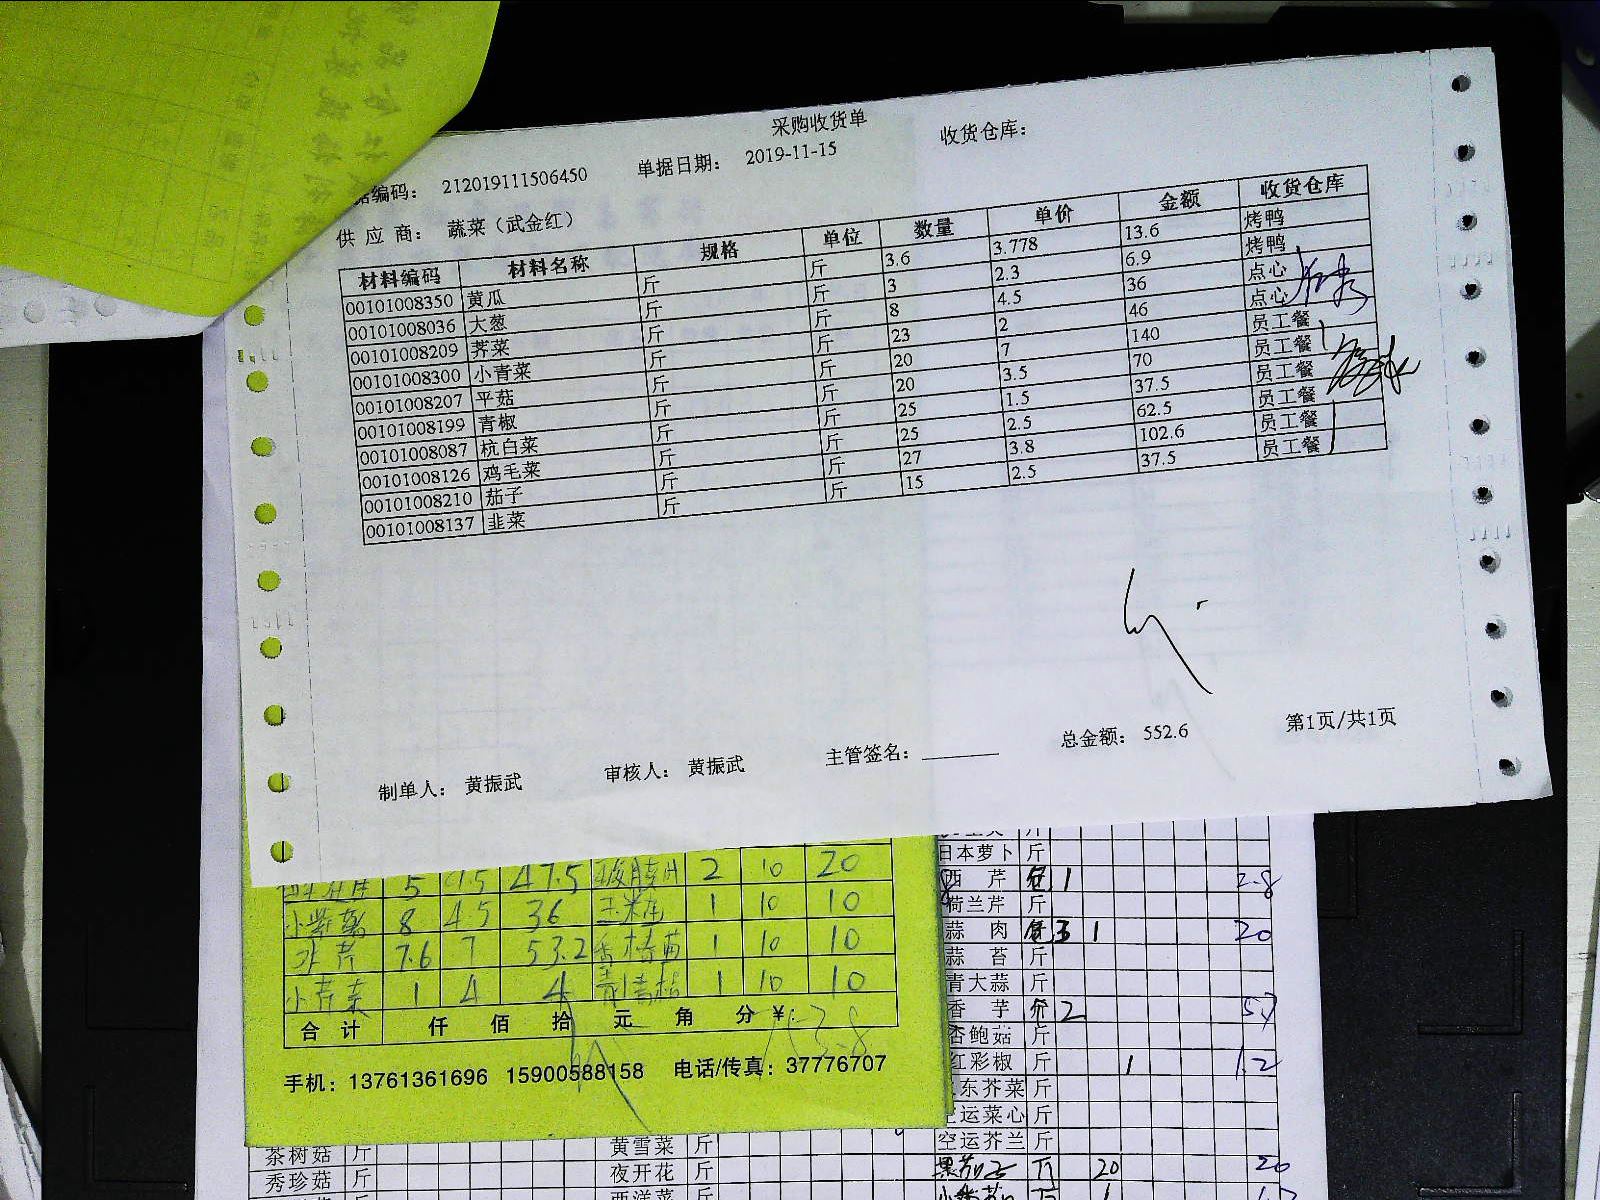 采购收货单
编码: 212019111506450 单据日期: 2019-11-15 收货仓库:
供 应 商: 蔬菜（武金红）
材料编码 材料名称 规格 单位 数量 单价 金额 收货仓库
00101008350 黄瓜 斤 斤 3.6 3.778 13.6 烤鸭
00101008036 大葱 斤 斤 3 2.3 6.9 烤鸭
00101008209 荠菜 斤 斤 8 4.5 36 点心
00101008300 小青菜 斤 斤 23 2 46 点心
00101008207 平菇 斤 斤 20 7 140 员工餐
00101008199 青椒 斤 斤 20 3.5 70 员工餐
00101008087 杭白菜 斤 斤 25 1.5 37.5 员工餐
00101008126 鸡毛菜 斤 斤 25 2.5 62.5 员工餐
00101008210 茄子 斤 斤 27 3.8 102.6 员工餐
00101008137 韭菜 斤 斤 15 2.5 37.5 员工餐
制单人: 黄振武 审核人: 黄振武 主管签名: 总金额: 552.6 第1页/共1页
5 9.5 47.5 2 10 20
8 4.5 36 1 10 10
7.6 7 53.2 1 10 10
小青菜 1 4 4 1 10 10
合 计 仟 佰 拾 元 角 分 ¥:
手机: 13761361696 15900588158 电话/传真: 37776707
日本萝卜 斤
西 芹 1 2.8
荷兰芹 斤
蒜 肉 1 20
蒜 苔 斤
青大蒜 斤
香 芋 斤 2
杏鲍菇 斤
红彩椒 斤 1 1.2
东芥菜 斤
运菜心 斤
空运芥兰 斤
20 20
茶树菇 斤 黄雪菜 斤
秀珍菇 斤 夜开花 斤
西洋菜 斤